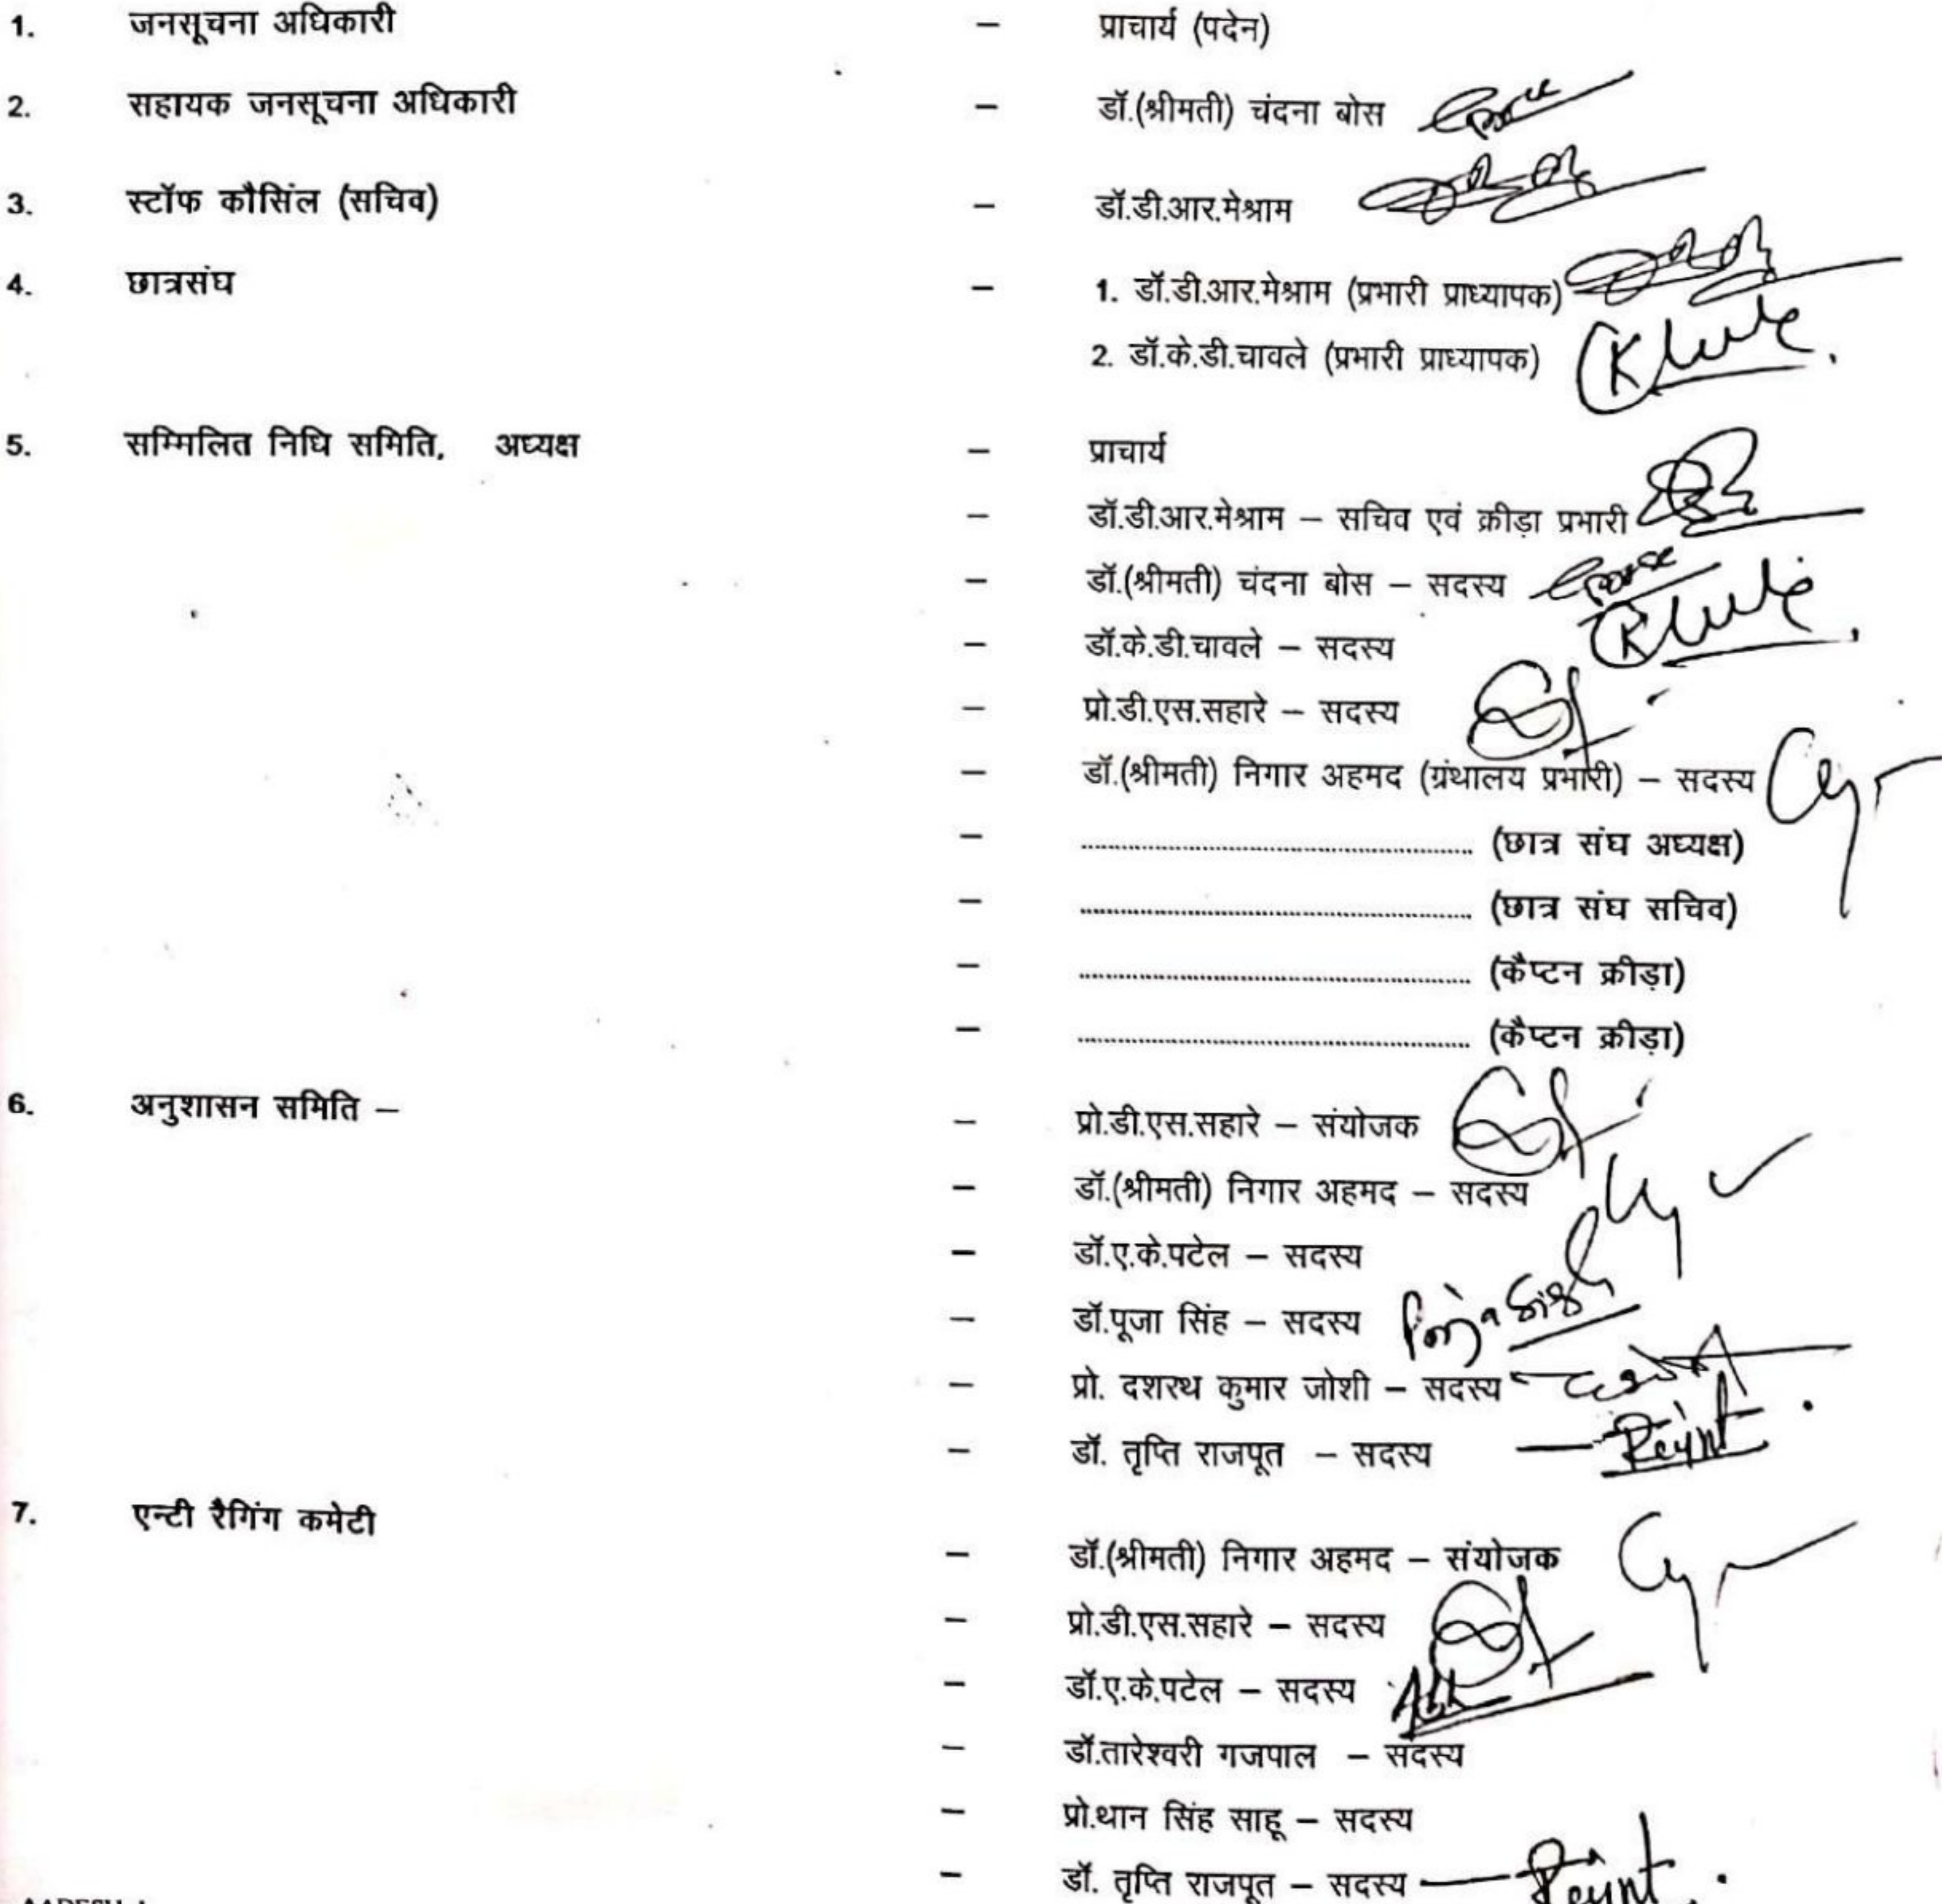 1. जनसूचना अधिकारी – प्राचार्य (पदेन)
2. सहायक जनसूचना अधिकारी – डॉ.(श्रीमती) चंदना बोस
3. स्टॉफ कौसिंल (सचिव) – डॉ.डी.आर.मेश्राम
4. छात्रसंघ – 1. डॉ.डी.आर.मेश्राम (प्रभारी प्राध्यापक)
2. डॉ.के.डी.चावले (प्रभारी प्राध्यापक)
5. सम्मिलित निधि समिति, अध्यक्ष – प्राचार्य
– डॉ.डी.आर.मेश्राम – सचिव एवं क्रीड़ा प्रभारी
– डॉ.(श्रीमती) चंदना बोस – सदस्य
– डॉ.के.डी.चावले – सदस्य
– प्रो.डी.एस.सहारे – सदस्य
– डॉ.(श्रीमती) निगार अहमद (ग्रंथालय प्रभारी) – सदस्य
– ........................................ (छात्र संघ अध्यक्ष)
– ........................................ (छात्र संघ सचिव)
– ........................................ (कैप्टन क्रीड़ा)
– ........................................ (कैप्टन क्रीड़ा)
6. अनुशासन समिति – – प्रो.डी.एस.सहारे – संयोजक
– डॉ.(श्रीमती) निगार अहमद – सदस्य
– डॉ.ए.के.पटेल – सदस्य
– डॉ.पूजा सिंह – सदस्य
– प्रो. दशरथ कुमार जोशी – सदस्य
– डॉ. तृप्ति राजपूत – सदस्य
7. एन्टी रैगिंग कमेटी
– डॉ.(श्रीमती) निगार अहमद – संयोजक
– प्रो.डी.एस.सहारे – सदस्य
– डॉ.ए.के.पटेल – सदस्य
– डॉ.तारेश्वरी गजपाल – सदस्य
– प्रो.थान सिंह साहू – सदस्य
– डॉ. तृप्ति राजपूत – सदस्य